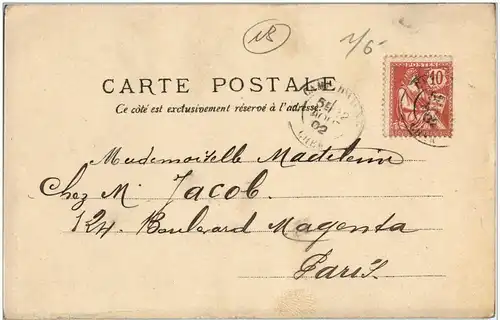 18
1/6
POSTES
10
CARTE POSTALE
Ce côté est exclusivement réservé à l'adresse.
02
Mademoiselle Madeleine
Chez M. Jacob.
124. Boulevard Magenta
Paris